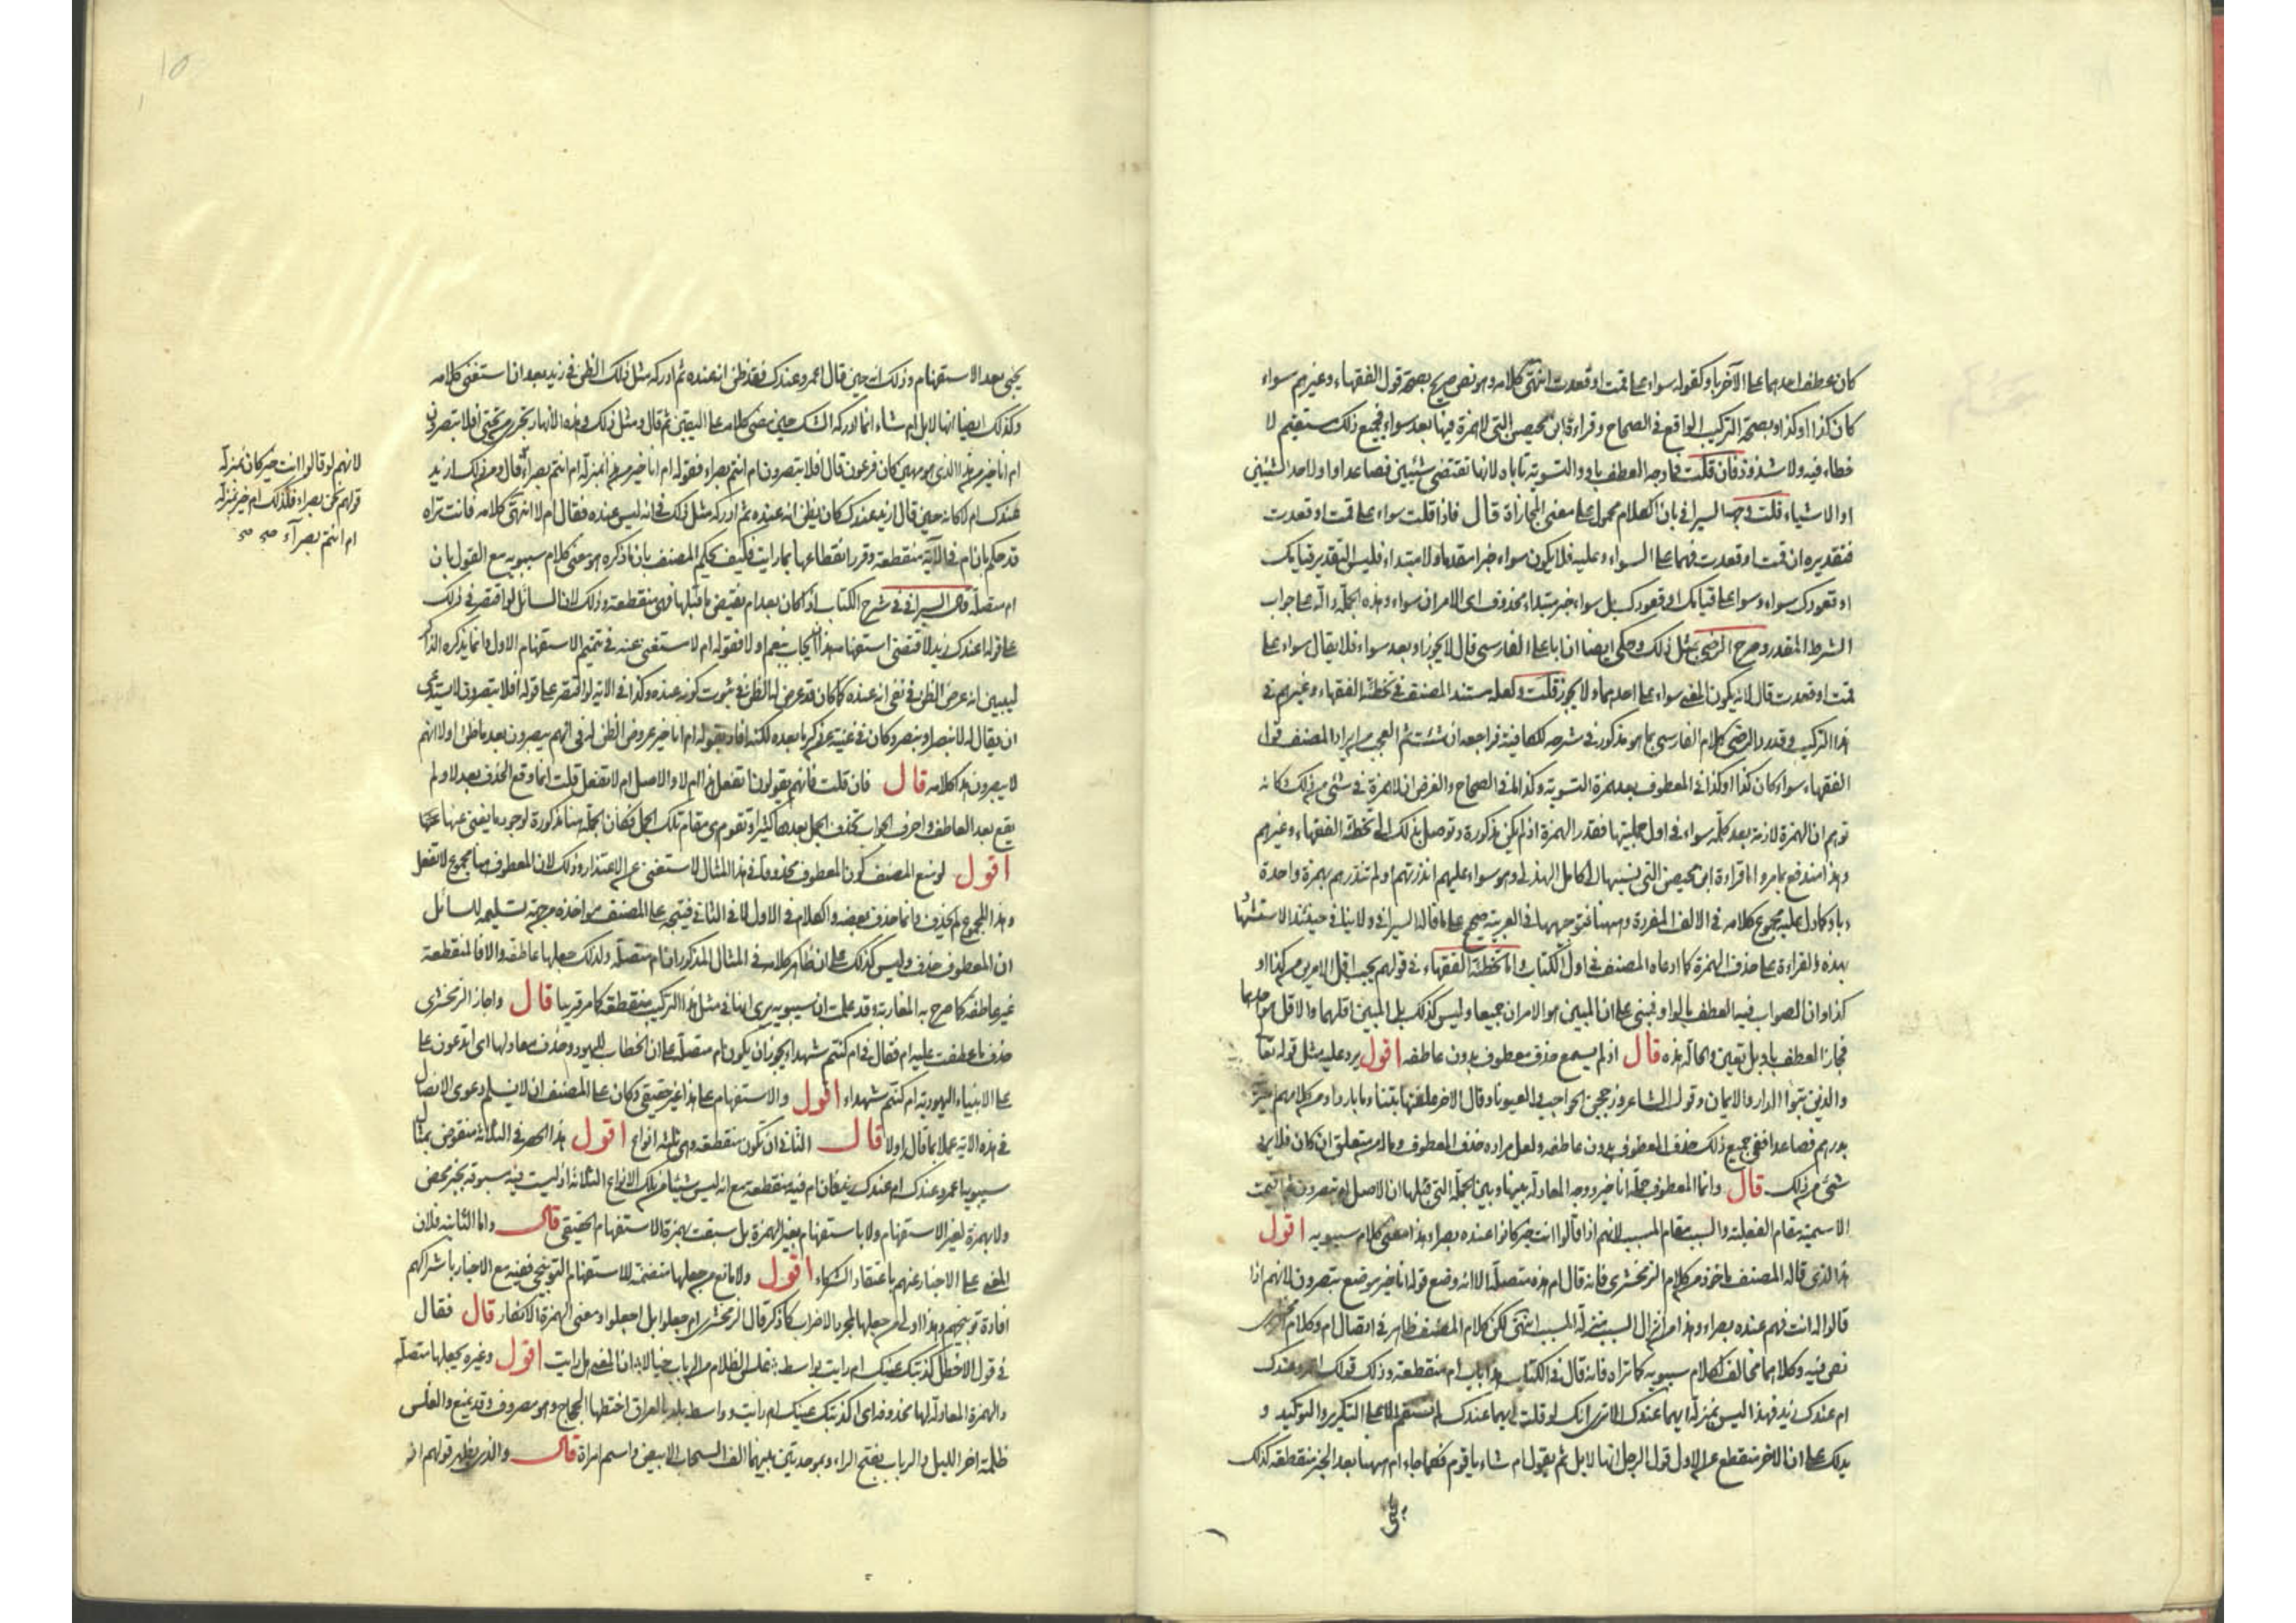 كان عطف احدهما على الآخر باو كقوله سواء على قمت او قعدت انتهى كلامه وهو نص صريح بصحة قول الفقهاء وغيرهم سواء
كان كذا او كذا وبصحة التركيب الواقع في الصحاح وقراءة ابن محيصن التي لا همزة فيها بعد سواء فجميع ذلك مستقيم لا
خطاء فيه ولا شذوذ فان قلت فما وجه العطف باو والتسوية تاباه لانها تقتضي شيئين فصاعدا واو لاحد الشيئين
او الاشياء قلت وجهه السيرافي بان الكلام محمول على معنى المجازاة قال فاذا قلت سواء على قمت او قعدت
فتقديره ان قمت او قعدت فهما على سواء وعليه فلا يكون سواء خبرا مقدما ولا مبتداء فليس التقدير قيامك
او قعودك سواء وسواء على قيامك او قعودك بل سواء خبر مبتداء محذوف اى الامران سواء وهذه الجملة دالة على جواب
الشرط المقدر وصرح الرضي بمثل ذلك وحكى ايضا ان ابا على الفارسي قال لا يجوز او بعد سواء فلا يقال سواء على
قمت او قعدت قال لانه يكون المعنى سواء على احدهما ولا يجوز قلت ولعله مستند المصنف في تخطئة الفقهاء وغيرهم في
هذا التركيب وقد رد الرضي كلام الفارسي بما هو مذكور في شرحه للكافية فراجعه ان شئت ثم العجب من ايراد المصنف قول
الفقهاء سواء كان كذا او كذا في المعطوف بعد همزة التسوية وكذا ما في الصحاح والفرض ان لا همزة في شئ من ذلك فكانه
توهم ان الهمزة لازمة بعد كلمة سواء في اول جملتيها فقدر الهمزة اذ لم يكن مذكورة وتوصل بذلك الى تخطئة الفقهاء وغيرهم
وهذا مندفع بما مر واما قراءة ابن محيصن التي نسبها الى كامل الهذلي وهو سواء عليهم انذرتهم او لم تنذرهم بهمزة واحدة
وباو كما دل عليه مجموع كلامه في الالف المفردة وههنا فتوجيهها في العربية صحيح على ما قاله السيرافي ولا ينافي حينئذ الاستشهاد
بهذه القراءة على حذف الهمزة كما ادعاه المصنف في اول الكتاب واما تخطئة الفقهاء في قولهم يجب اقل الامرين من كذا او
كذا وان الصواب فيه العطف بالواو فمبني على ان المبين هو الامران جميعا وليس كذلك بل المبين اقلهما والاقل هو احدهما
فجاز العطف باو بل تعين والحالة هذه قال اذ لم يسمع حذف معطوف بدون عاطفه اقول يرد عليه مثل قوله تعالى
والذين تبوأ الدار والايمان وقول الشاعر وزججن الحواجب والعيونا وقال الاخر علفتها بتنا وماء باردا ومن كلامهم اخذته
بدرهم فصاعدا ففي جميع ذلك حذف المعطوف بدون عاطفه ولعل مراده حذف المعطوف وماله من متعلق ان كان فلا يرد
شئ من ذلك قال وانما المعطوف جملة انا خير ووجه المعادلة بينها وبين الجملة التي قبلها ان الاصل ام تبصرون ثم اقيمت
الاسمية مقام الفعلية والسبب مقام المسبب لانهم اذا قالوا انت خير كانوا عنده بصراء وهذا معنى كلام سيبويه اقول
هذا الذي قاله المصنف ماخوذ من كلام الزمخشري فانه قال ام هذه متصلة الا انه وضع قوله انا خير موضع تبصرون لانهم اذا
قالوا له انت خير فهم عنده بصراء وهذا من انزال السبب منزلة المسبب انتهى لكن كلام المصنف ظاهر في اتصال ام وكلام الزمخشري
نص فيه وكلاهما مخالف لكلام سيبويه كما تراه فانه قال في الكتاب هذا باب ام منقطعة وذلك قولك اعمرو عندك
ام عندك زيد فهذا ليس بمنزلة ايهما عندك الا ترى انك لو قلت ايهما عندك لم يستقم الا على التكرير والتوكيد و
يدلك على ان الاخر منقطع عن الاول قول الرجل انها لابل ثم يقول ام شاء يا قوم فكما جاء ام ههنا بعد الخبر منقطعة كذلك
يجئ
يجئ بعد الاستفهام وذلك انه حين قال اعمرو عندك فقد ظن انه عنده ثم ادركه مثل ذلك الظن في زيد بعد ان استغنى كلامه
وكذلك ايضا انها لابل ام شاء انما ادركه الشك حين مضى كلامه على اليقين ثم قال ومثل ذلك وهذه الانهار تجري من تحتي افلا تبصرون
ام انا خير من هذا الذي هو مهين كان فرعون قال افلا تبصرون ام انتم بصراء فقوله ام انا خير من هذا بمنزلة ام انتم بصراء قال ومن ذلك ازيد
عندك ام لا كانه حين قال ازيد عندك كان يظن انه عنده ثم ادركه مثل ذلك في انه ليس عنده فقال ام لا انتهى كلامه فانت تراه
قد حكم بان ام في الآية منقطعة وقرر انقطاعها بما رايت فكيف يحكم المصنف بان ما ذكره هو معنى كلام سيبويه مع القول بان
ام متصلة قال السيرافي في شرح الكتاب اذا كان بعد ام نقيض ما قبلها فهى منقطعة وذلك لان السائل لو اقتصر في ذلك
على قوله اعندك زيد لاقتضى استفهامه هذا ان يجاب بنعم او لا فقوله ام لا مستغنى عنه في تتميم الاستفهام الاول وانما يذكره الذاكر
ليبين انه عرض الظن في نفي انه عنده كما كان قد عرض له الظن في ثبوت كونه عنده وكذا في الآية لو اقتصر على قوله افلا تبصرون لاستدعى
ان يقال له لا نبصر او نبصر وكان في غنية عن ذكر ما بعده لكنه افاد بقوله ام انا خير عروض الظن له في انهم يبصرون بعد ما ظن اولا انهم
لا يبصرون هذا كلامه قال فان قلت فانهم يقولون اتفعل هذا ام لا والاصل ام لا تفعل قلت انما وقع الحذف بعد لا ولم
يقع بعد العاطف واحرف الجواب تحذف الجمل بعدها كثيرا وتقوم هى مقام تلك الجمل فكان الجملة هنا مذكورة لوجود ما يغني عنها
اقول لو منع المصنف كون المعطوف محذوفا في هذا المثال لاستغنى عن الاعتذار وذلك لان المعطوف هنا مجموع لا تفعل
وهذا المجموع لم يحذف وانما حذف بعضه والكلام في الاول لا في الثاني فيتجه على المصنف مؤاخذه من جهة تسليمه للسائل
ان المعطوف حذف وليس كذلك على ان ظاهر كلامه في المثال المذكور ان ام متصلة ولذلك جعلها عاطفة والا فالمنقطعة
غير عاطفة كما صرح به المغاربة وقد علمت ان سيبويه يرى انها في مثل هذا التركيب منقطعة كما مر قريبا قال واجاز الزمخشري
حذف ما عطفت عليه ام فقال في ام كنتم شهداء يجوز ان يكون ام متصلة على ان الخطاب لليهود وحذف معادلها اى اتدعون على
على الانبياء اليهودية ام كنتم شهداء اقول والاستفهام على هذا غير حقيقي وكان على المصنف ان لا يسلم دعوى الاتصال
في هذه الآية عملا بما قال اولا قال الثاني ان تكون منقطعة وهى ثلثة انواع اقول هذا الحصر في الثلاثة منقوض بمثال
سيبويه اعمرو عندك ام عندك زيد فان ام فيه منقطعة مع انه ليس شيئا من تلك الانواع الثلاثة اذ ليست فيه مسبوقة بخبر محض
ولا بهمزة لغير الاستفهام ولا باستفهام بغير الهمزة بل سبقت بهمزة الاستفهام الحقيقي قال واما الثانية فلان
المعنى على الاخبار عنهم باعتقاد الشركاء اقول ولا مانع من جعلها متضمنة للاستفهام التوبيخي ففيه مع الاخبار باشراكهم
افادة توبيخهم وهذا اولى من جعلها لمجرد الاضراب كما ذكر قال الزمخشري ام جعلوا بل اجعلوا ومعنى الهمزة الانكار قال فقال
في قول الاخطل كذبتك عينك ام رايت بواسط غلس الظلام من الرباب خيالا ان المعنى هل رايت اقول وغيره يجعلها متصلة
والهمزة المعادلة لها محذوفة اى اكذبتك عينك ام رايت وواسط بلد بالعراق اختطها الحجاج وهو مصروف وقد يمنع والغلس
ظلمة اخر الليل والرباب بفتح الراء وبموحدتين بينهما الف السحاب الابيض واسم امراة قال والذي يظهر قولهم انه
لانهم لو قالوا انت خير كان بمنزلة
قولهم نحن بصراء فكذلك ام خير بمنزلة
ام انتم بصرآء صح صح
10